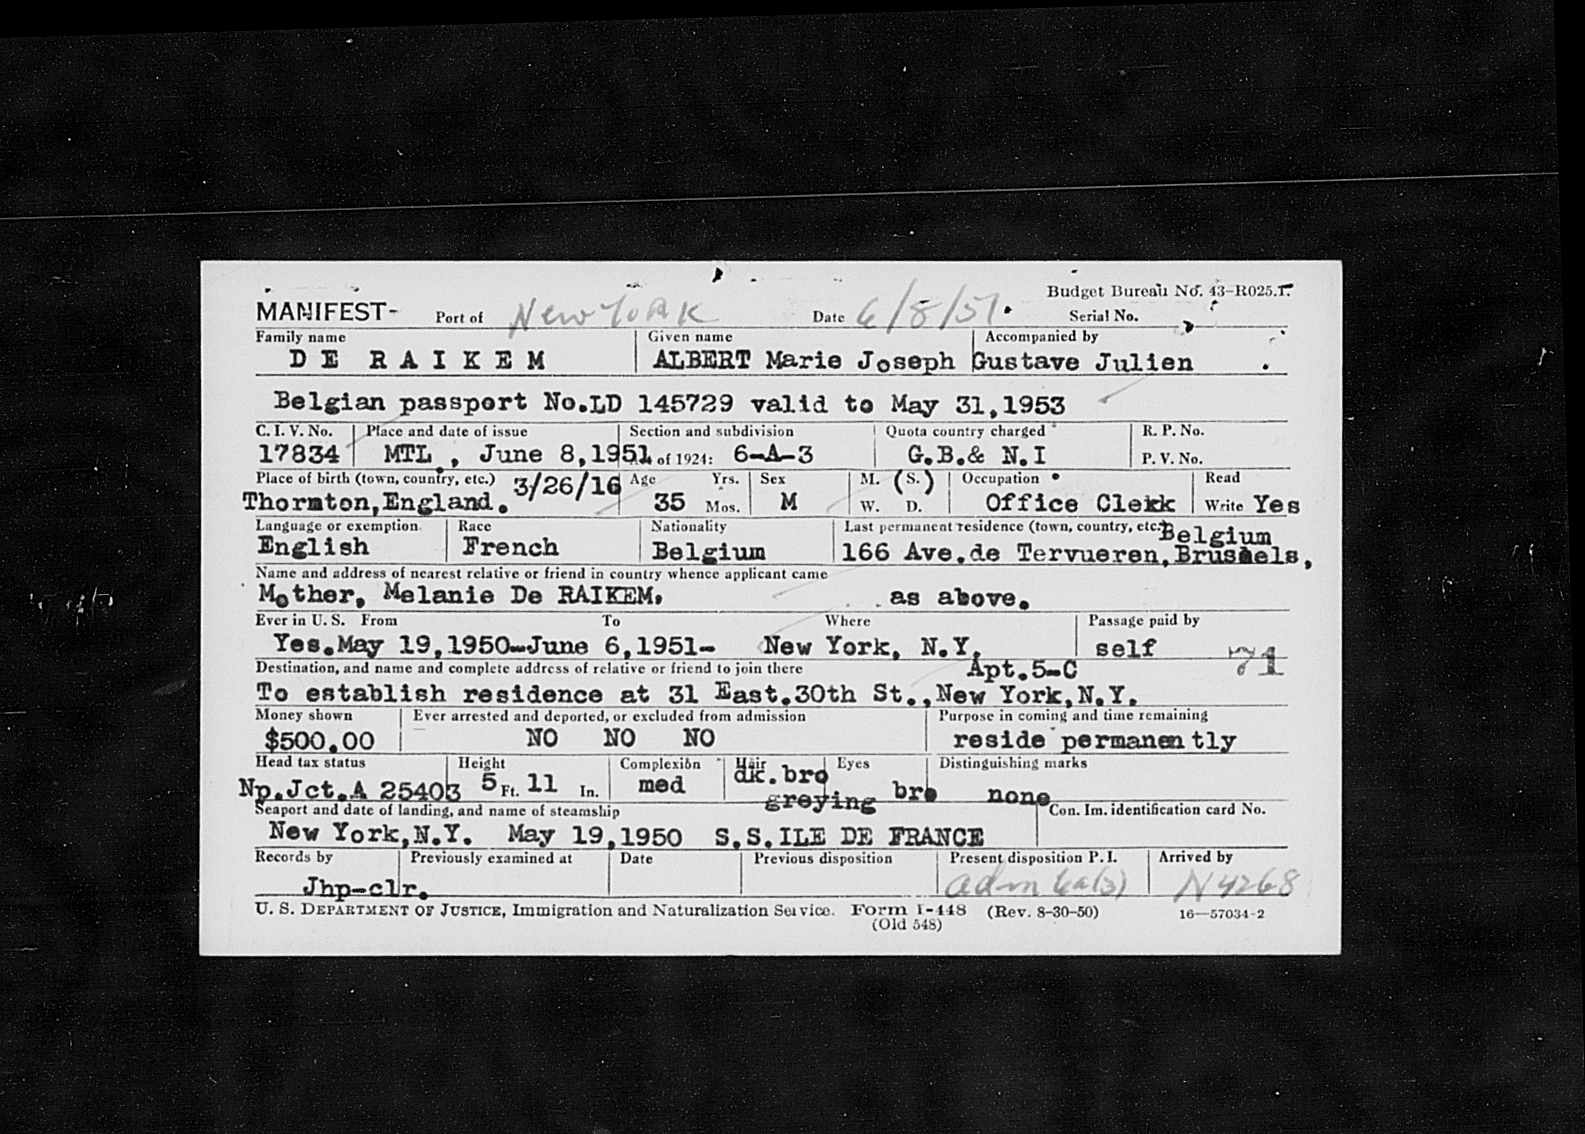 Budget Bureau No. 43-R025.1.
MANIFEST- Port of New York Date 6/8/51. Serial No.
Family name Given name Accompanied by
DE RAIKEM ALBERT Marie Joseph Gustave Julien .
Belgian passport No.LD 145729 valid to May 31,1953
C. I. V. No. Place and date of issue Section and subdivision Quota country charged R. P. No.
17834 MTL., June 8,1951 of 1924: 6-A-3 G.B.& N.I P. V. No.
Place of birth (town, country, etc.) 3/26/16 Age Yrs. Sex M. (S.) Occupation Read
Thornton,England. 35 Mos. M W. D. Office Clerk Write Yes
Language or exemption Race Nationality Last permanent residence (town, country, etc.) Belgium
English French Belgium 166 Ave.de Tervueren,Brussels,
Name and address of nearest relative or friend in country whence applicant came
Mother, Melanie De RAIKEM. as above.
Ever in U. S. From To Where Passage paid by
Yes.May 19,1950-June 6,1951- New York, N.Y. self 71
Destination, and name and complete address of relative or friend to join there Apt.5-C
To establish residence at 31 East.30th St.,New York,N.Y.
Money shown Ever arrested and deported, or excluded from admission Purpose in coming and time remaining
$500.00 NO NO NO reside permanently
Head tax status Height Complexion Hair Eyes Distinguishing marks
Np.Jct.A 25403 5 Ft. 11 In. med dk.bro greying bro none
Seaport and date of landing, and name of steamship Con. Im. identification card No.
New York,N.Y. May 19,1950 S.S.ILE DE FRANCE
Records by Previously examined at Date Previous disposition Present disposition P. I. Arrived by
Jhp-clr. adm 6a(3) N4268
U. S. DEPARTMENT OF JUSTICE, Immigration and Naturalization Service. Form I-448 (Rev. 8-30-50) 16—57034-2
(Old 548)